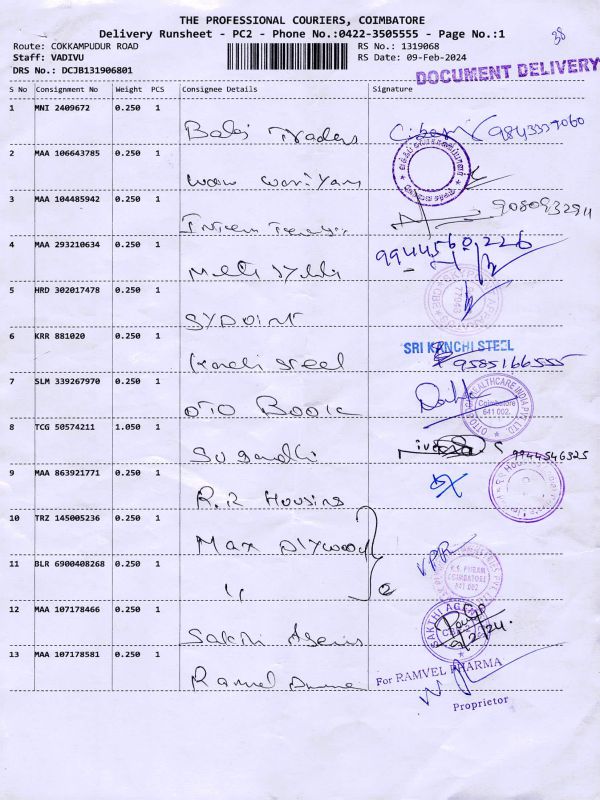 THE PROFESSIONAL COURIERS, COIMBATORE
Delivery Runsheet - PC2 - Phone No.:0422-3505555 - Page No.:1
38
Route: COKKAMPUDUR ROAD RS No.: 1319068
Staff: VADIVU RS Date: 09-Feb-2024
DRS No.: DCJB131906801
DOCUMENT DELIVERY
S No Consignment No Weight PCS Consignee Details Signature
1 MNI 2409672 0.250 1
Traders
2 MAA 106643785 0.250 1
3 MAA 104485942 0.250 1
9080932911
4 MAA 293210634 0.250 1
9944560226
5 HRD 302017478 0.250 1
SYPOINT
6 KRR 881020 0.250 1
SRI KANCHI STEEL
Kanchi Steel 9585166555
7 SLM 339267970 0.250 1
OTTO Book
HEALTHCARE INDIA PVT. LTD.
Coimbatore
641 002.
8 TCG 50574211 1.050 1
Sugandhi 9944546325
9 MAA 863921771 0.250 1
R.R Housing
10 TRZ 145005236 0.250 1
Max Plywood
VPR
11 BLR 6900408268 0.250 1
"
R.S. PURAM
COIMBATORE
641 002
12 MAA 107178466 0.250 1
Sakthi Agencies
SAKTHI
9/2/24.
13 MAA 107178581 0.250 1
Ramvel Pharma
For RAMVEL PHARMA
Proprietor